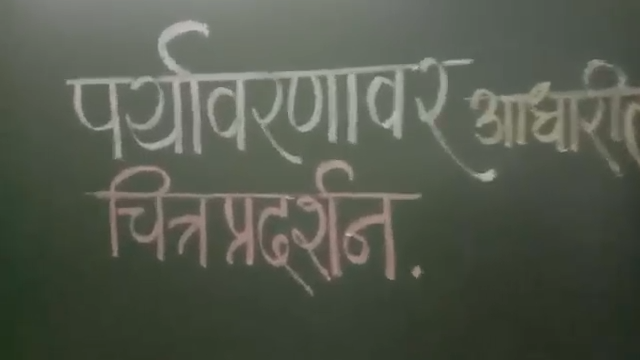 पर्यावरणावर आधारीत
चित्रप्रदर्शन.